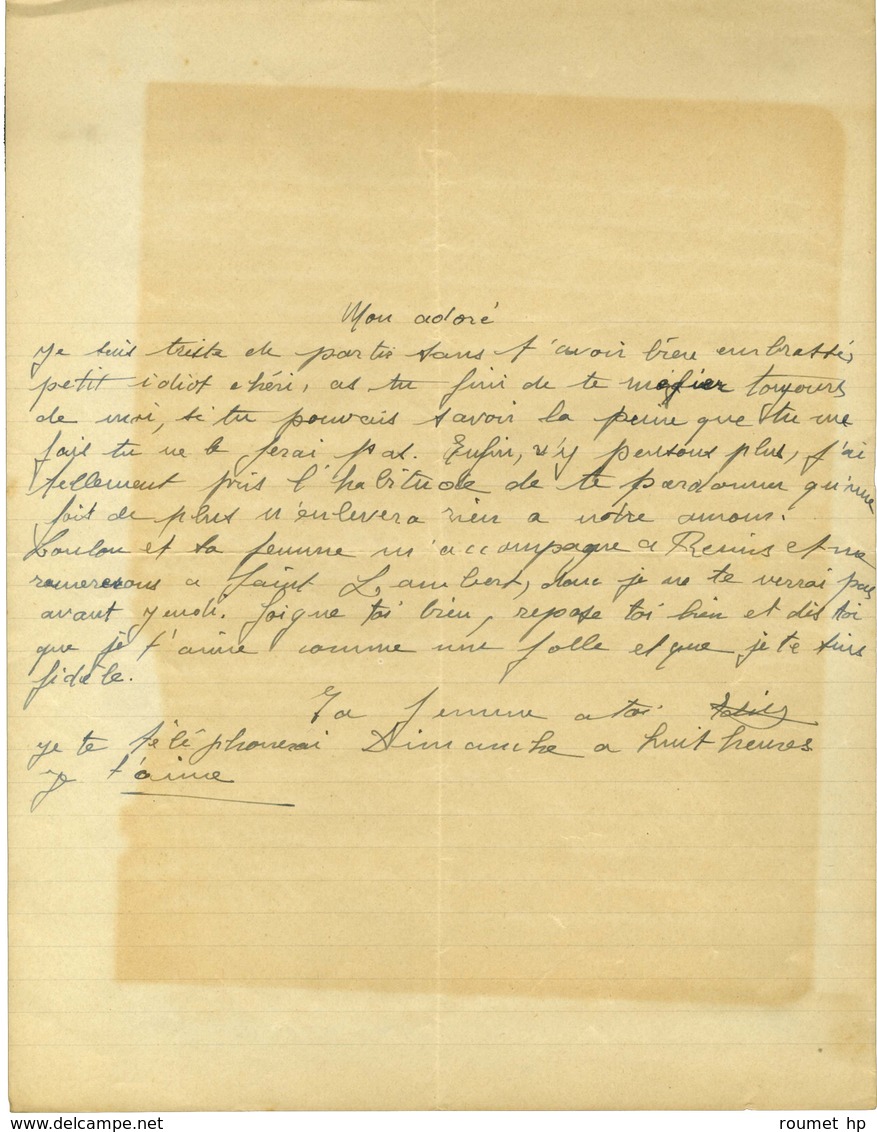 Mon adoré
je suis triste de partir sans t'avoir bien embrassé,
petit idiot chéri, as tu fini de te mefier toujours
de moi, si tu pouvais savoir la peine que tu me
fais tu ne le ferai pas. Enfin, n'y pensons plus, j'ai
tellement pris l'habitude de te pardonner qu'une
fois de plus n'enlevera rien a notre amour.
Loulou et sa femme m'accompagne a Reims et me
a Saint Lambert, donc je ne te verrai pas
avant jeudi. Soigne toi bien, repose toi bien et dis toi
que je t'aime comme une folle et que je te suis
fidèle.
Ta femme a toi
je te téléphonerai Dimanche a huit heures
je t'aime
delcampe.net
roumet hp